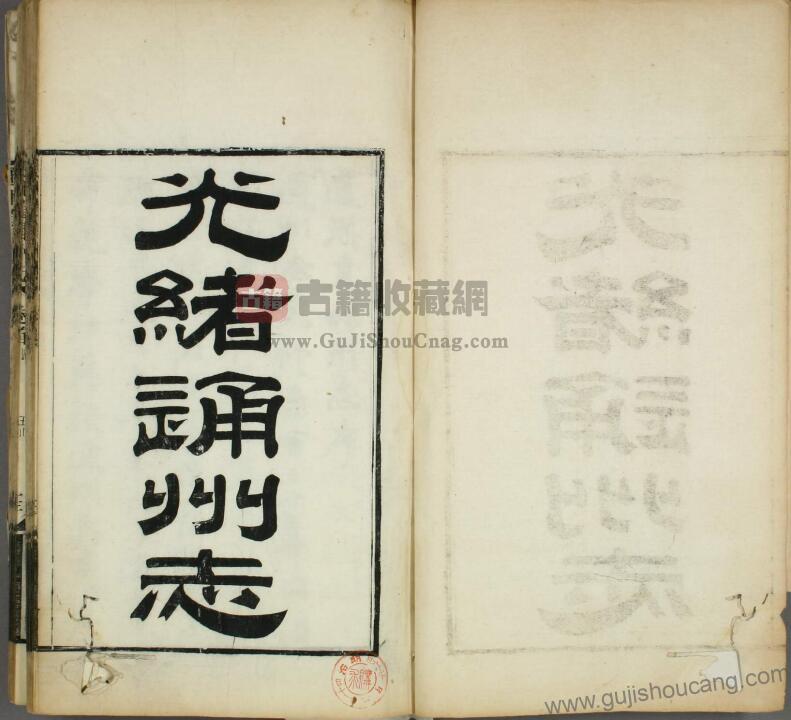 光緒通州志
古籍 古籍收藏網
www.GuJiShouCnag.com
www.gujishoucang.com